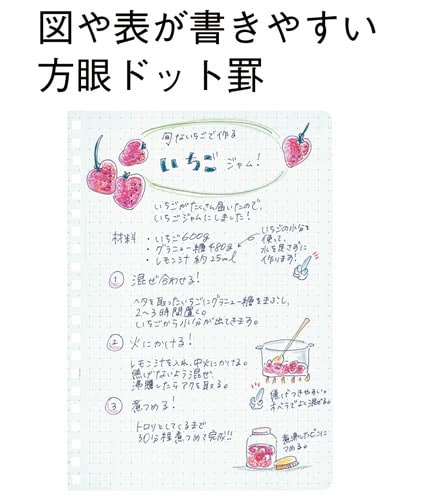 図や表が書きやすい
方眼ドット罫
旬ないちごで作る
いちごジャム！
いちごがたくさん届いたので、
いちごジャムにしました！
材料
・いちご 600g
・グラニュー糖 480g
・レモン汁 約25ml
いちごの水分を
使って、
水を足さずに
作ります！
① 混ぜ合わせる！
ヘタを取ったいちごにグラニュー糖をまぶし、
2〜3時間置く。
いちごから水分が出てきます。
② 火にかける！
レモン汁を入れ、中火にかける。
焦げないよう混ぜ、
沸騰したらアクを取る。
焦げつきやすい。
木べらでよく混ぜる。
③ 煮つめる！
トロリとしてくるまで
30分程煮つめて完成!!
煮沸したビンに
つめる。